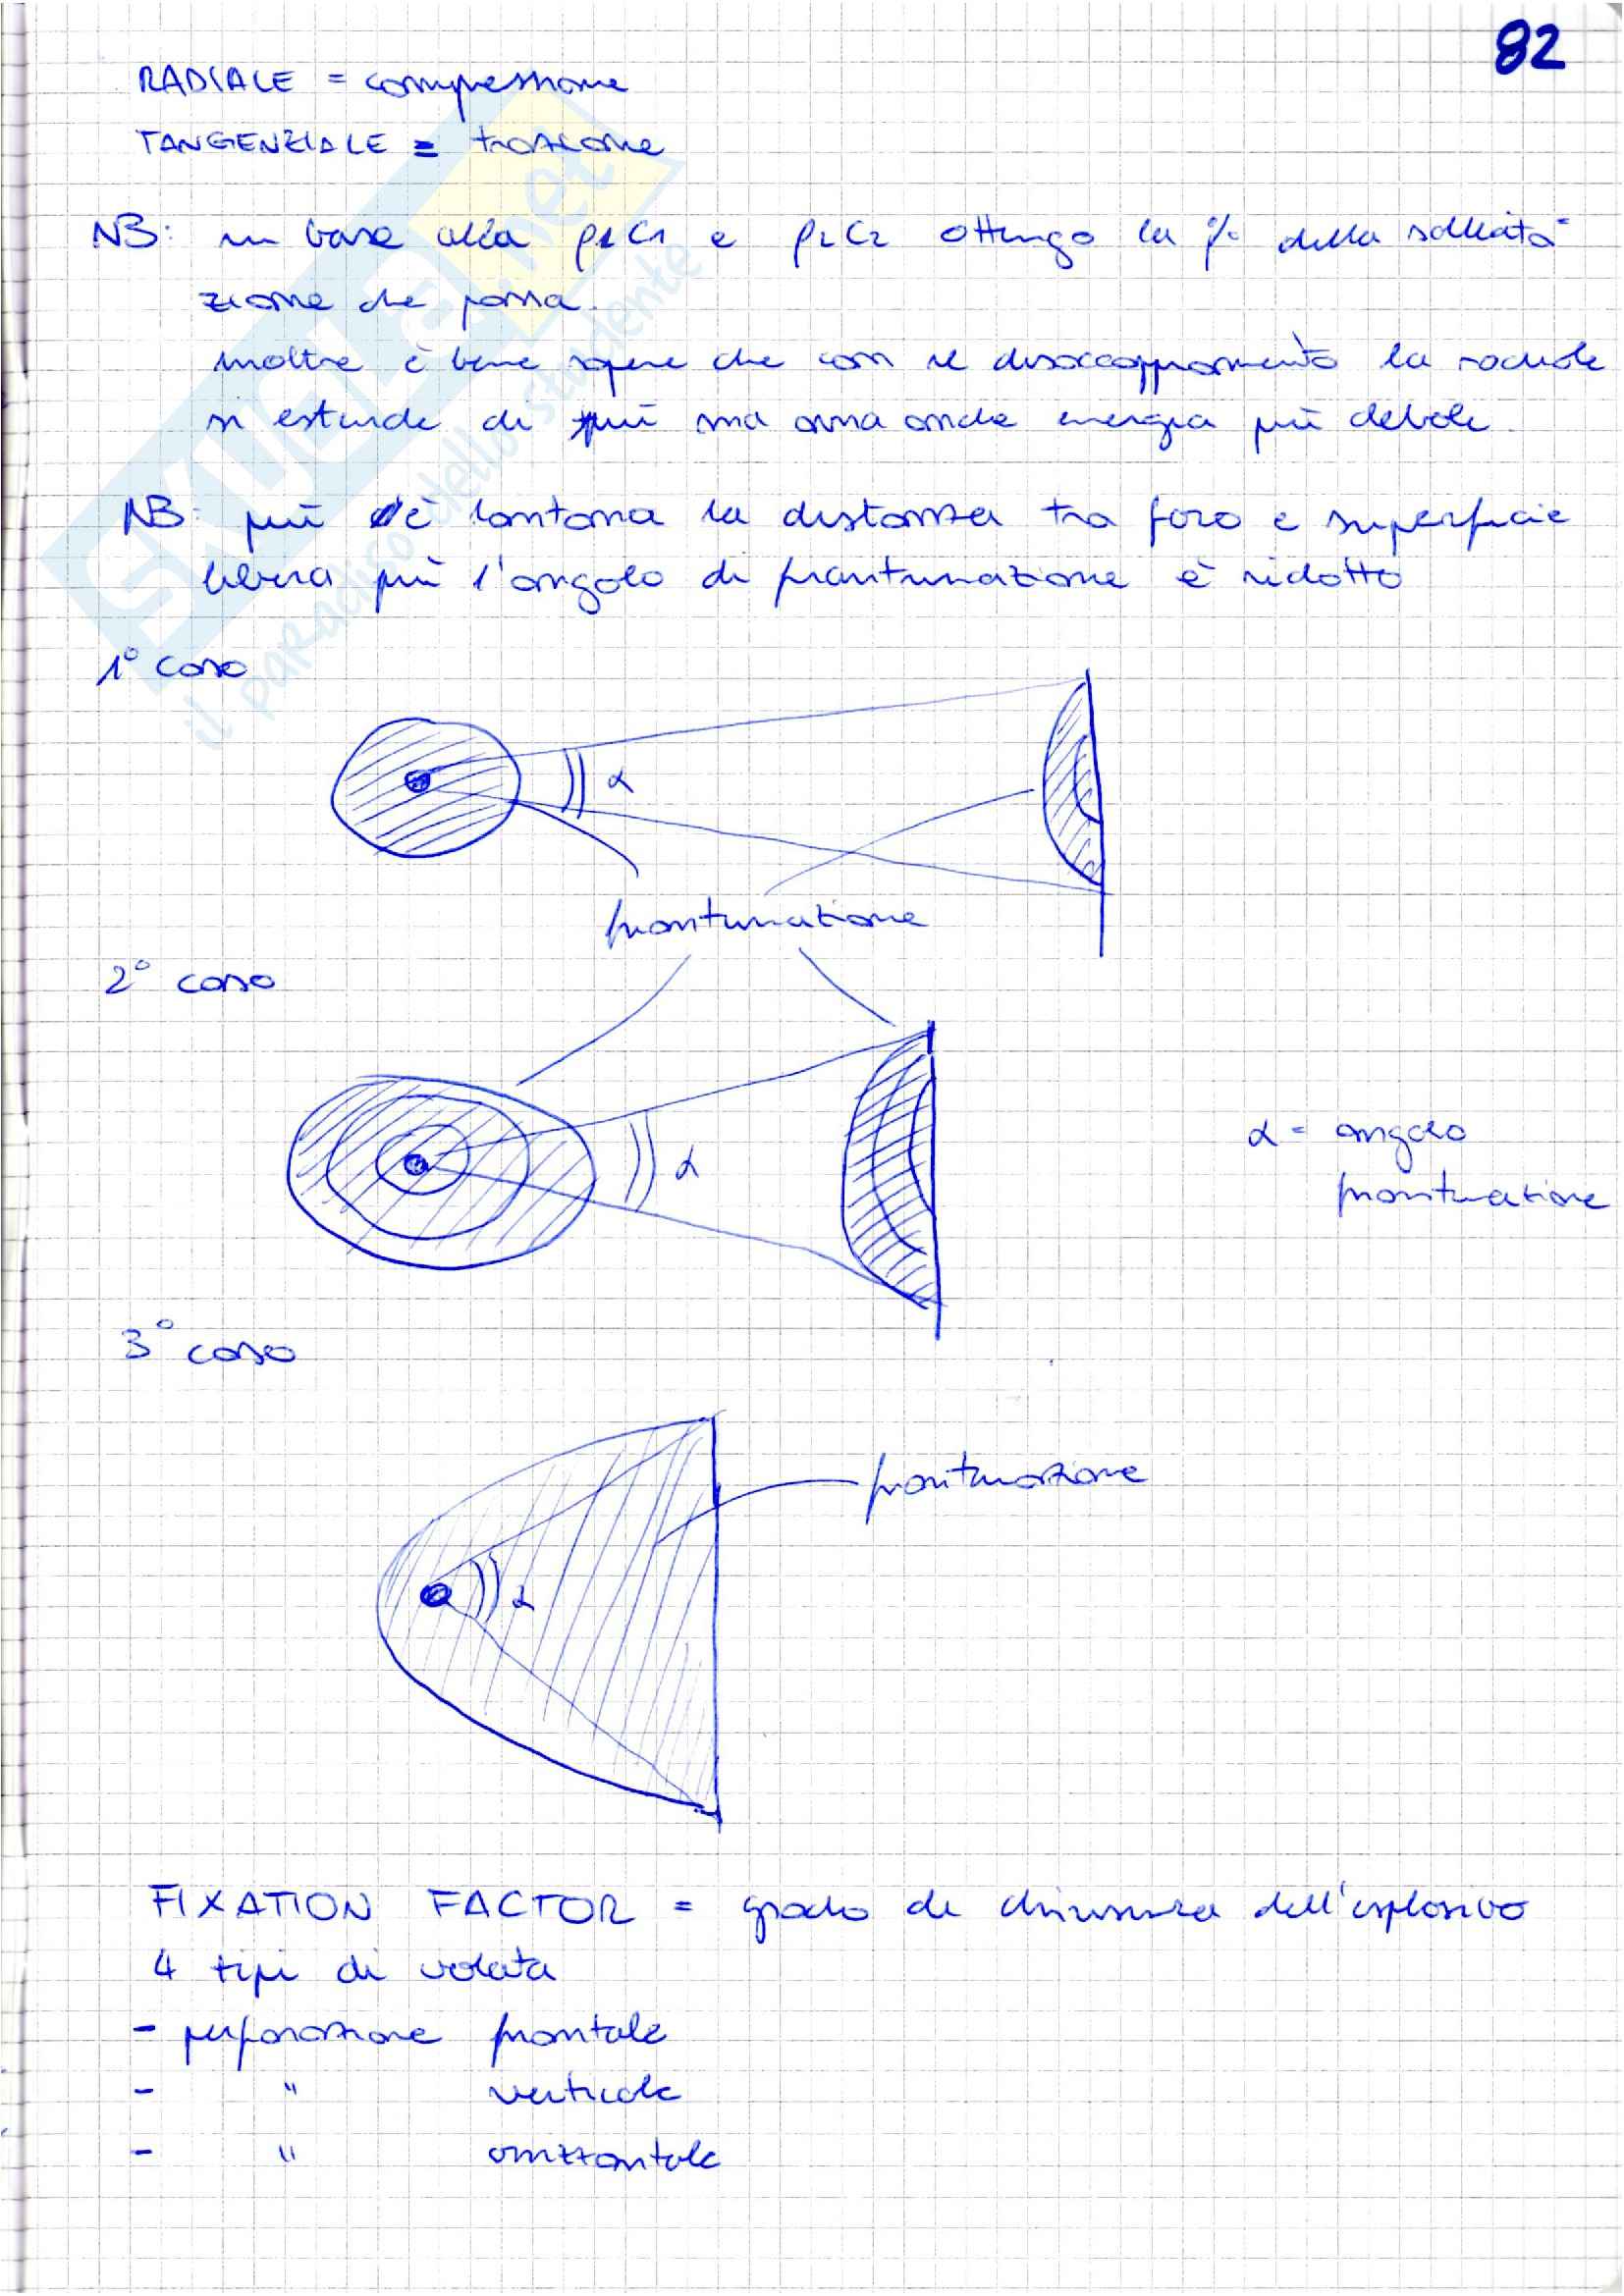 82
RADIALE = compressione
TANGENZIALE = trazione
NB: in base alla ρ1C1 e ρ2C2 ottengo la % della sollecita-
zione che passa.
inoltre è bene sapere che con il disaccoppiamento la radiale
si estende di più ma onda energia più debole.
NB: più è lontana la distanza tra foro e superficie
libera più l'angolo di frantumazione è ridotto
1° caso
α
frantumazione
2° caso
α
α = angolo
frantumazione
3° caso
frantumazione
α
FIXATION FACTOR = grado di chiusura dell'esplosivo
4 tipi di volata
- perforazione frontale
- " verticale
- " orizzontale
SKUOLA.net
il paradiso dello studente